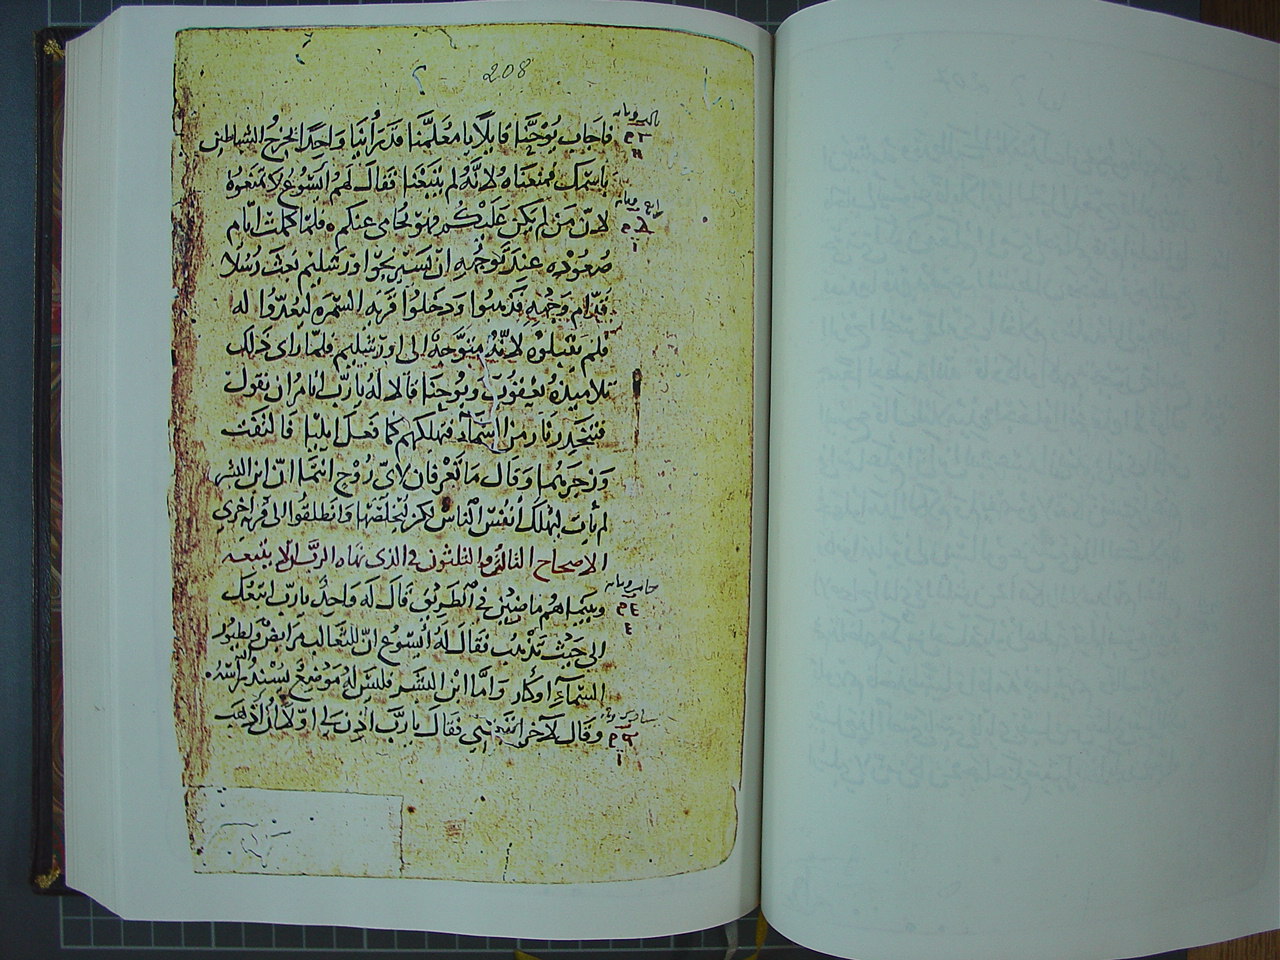 208
فاجاب يُوحَنَّا قايلًا يا معَلمَّنا قد رَأينَا وَاحِدًا يخرجُ الشياطين
باسمكَ فمنعناهُ لانَّهُ لم يتبَعْنا فقالَ لهم ايسُوع لا تمنَعُوهُ
لانّ مَن لم يكن عَليْكُم فهوَ يُحامى عنكم ٥ فلمّا كملتْ ايّام
صُعُودِه عند تَوَجُّهِهِ انْ يَسير الى اورشليم بعثَ رُسُلا
قدّام وَجْههِ فذهبوا وَدخلوا قريه السّمره ليُعدّوا له
فلم يقبلوهُ لانّهُ متوَّجهٌ الى اورشليم فلمّا راى ذلكَ
تلاميذهُ يعقُوبُ ويُوحنّا قالا لهُ يا ربّ اتامر ان نقول
فتنحدِر نَار من السّمآء فتهلكهم كما فعلَ ايليّا فالتفت
وَزجَرهُما وَقال ما تعْرفان لاىّ رُوْحٍ انتما انّ ابن البشر
لم يأتِ ليُهلكَ أنفُسَ الناسْ لكن ليُخلّصَها وَانطلقُوا الى قريه اخرى
الاصحاح الثالث والثلثون فى الذى نهاه الربّ الّا يتبعه
وبينما هُم ماضيْن فى الطَريقِ قالَ له وَاحِدٌ يا ربّ اتبَعكَ
الى حَيْثُ تَذْهبُ فقالَ لهُ ايسُوع انّ للثعالب مَرَابضْ ولطيُور
السّمآءِ اوكار وَامّا ابْن البشَر فليسَ لهُ مَوْضعٌ يسْندُ اليه رَاسَهُ.
وقال لآخر اتبَعْنِي فقالَ يا ربّ ائذن لى اوّلًا ان اذهَب